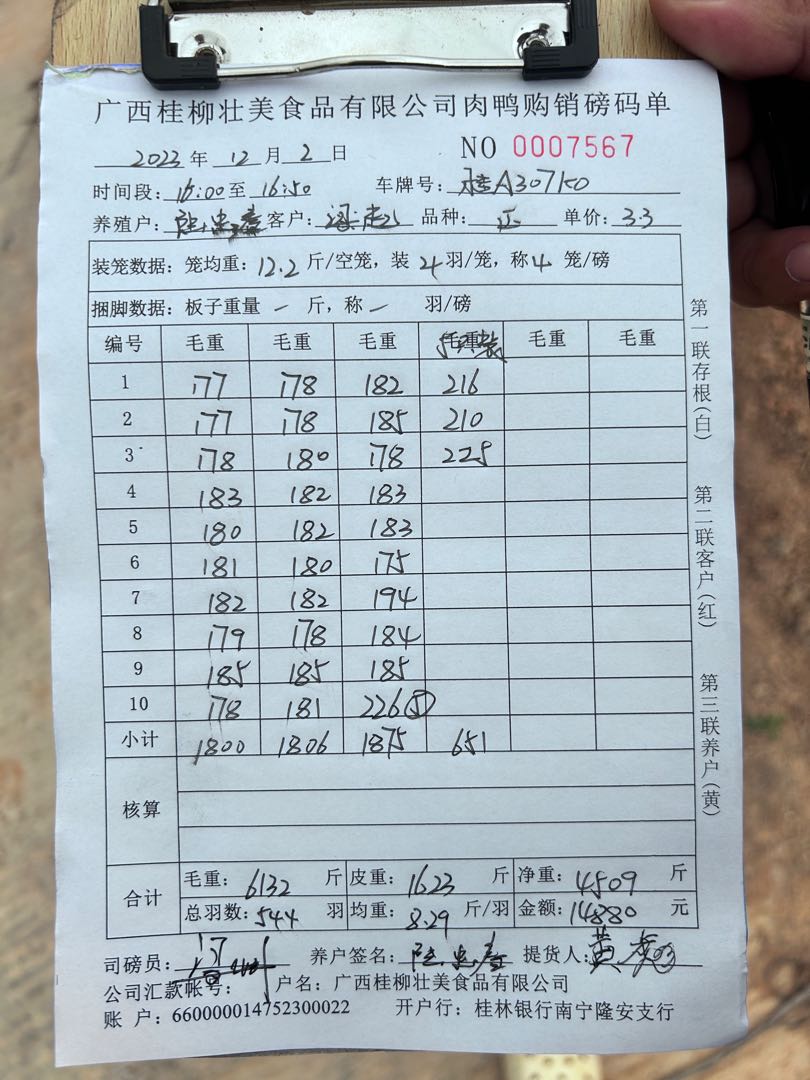 广西桂柳壮美食品有限公司肉鸭购销磅码单
2023年 12月 2日 NO 0007567
时间段: 15:00至 16:50 车牌号: 桂A307K0
养殖户: 客户: 品种: 正 单价: 3.3
装笼数据: 笼均重: 12.2 斤/空笼, 装 4 羽/笼, 称 4 笼/磅
捆脚数据: 板子重量 一 斤, 称 一 羽/磅
编号 毛重 毛重 毛重 毛重 毛重
1 177 178 182 216
2 177 178 185 210
3 178 180 178 225
4 183 182 183
5 180 182 183
6 181 180 175
7 182 182 194
8 179 178 184
9 185 185 185
10 178 181 226⑤
小计 1800 1806 1875 651
核算
合计 毛重: 6132 斤 皮重: 1623 斤 净重: 4509 斤
总羽数: 544 羽 均重: 8.29 斤/羽 金额: 14880 元
司磅员: 养户签名: 提货人: 黄
公司汇款帐号: 户名: 广西桂柳壮美食品有限公司
账 户: 660000014752300022 开户行: 桂林银行南宁隆安支行
第一联存根(白)
第二联客户(红)
第三联养户(黄)